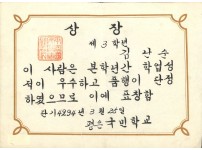 상장
제 3 학년
김난순
이 사람은 본학년간 학업성
적이 우수하고 품행이 단정
하였으므로 이에 표창함
단기 4294년 3월 25일
국민학교